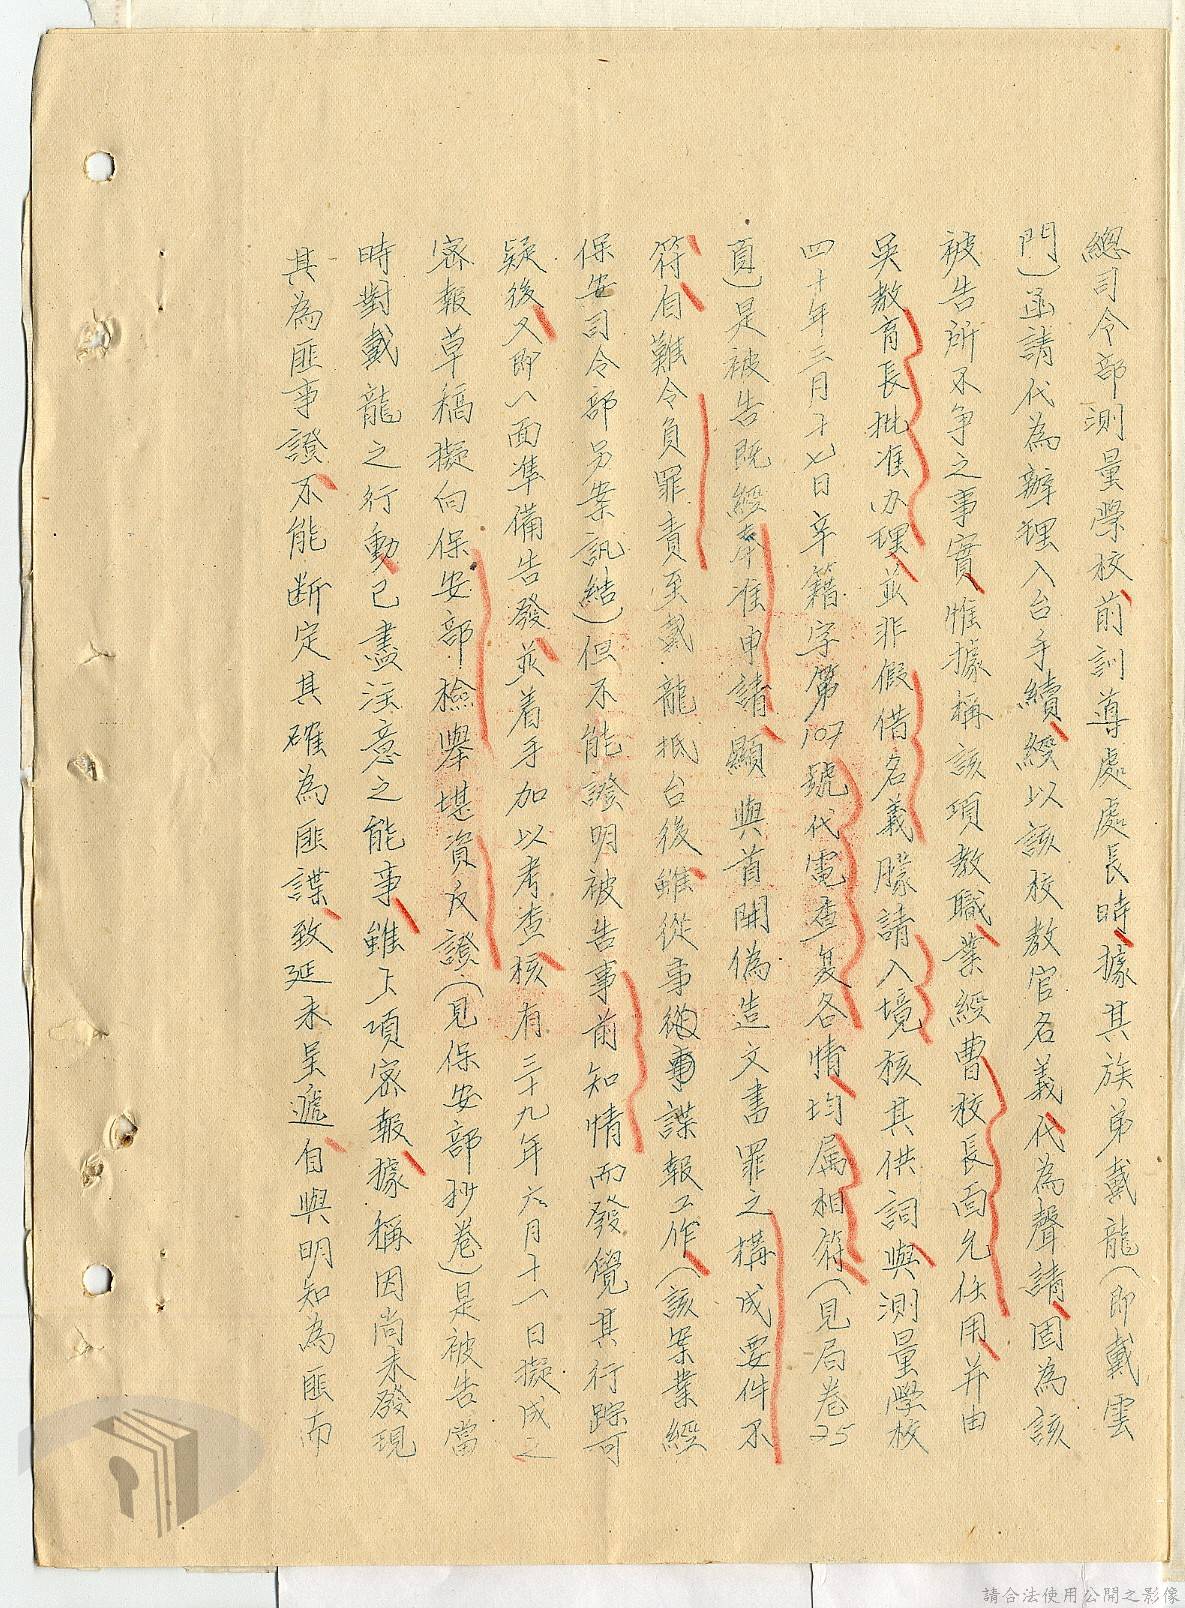 總司令部測量學校前訓導處處長時據其族弟戴龍(即戴雲
門)函請代為辦理入台手續經以該校教官名義代為聲請固為該
被告所不争之事實惟據稱該項教職業經曹校長面允任用并由
吳教育長批准办理並非假借名義朦請入境核其供詞與測量學校
四十年三月十七日辛籍字第107號代電查复各情均属相符(見局卷25
頁)是被告既經奉准申請顯與首開偽造文書罪之構成要件不
符自難令負罪責至戴龍抵台後雖從事諜報工作(該案業經
保安司令部另案訊結)但不能證明被告事前知情而發覺其行踪可
疑後又即一面準備告發並着手加以考查核有三十九年六月十一日擬成之
密報草稿擬向保安部檢舉堪資反證(見保安部抄卷)是被告當
時對戴龍之行動已盡注意之能事雖上項密報據稱因尚未發現
其為匪事證不能斷定其確為匪諜致延未呈遞自與明知為匪而
請合法使用公開之影像